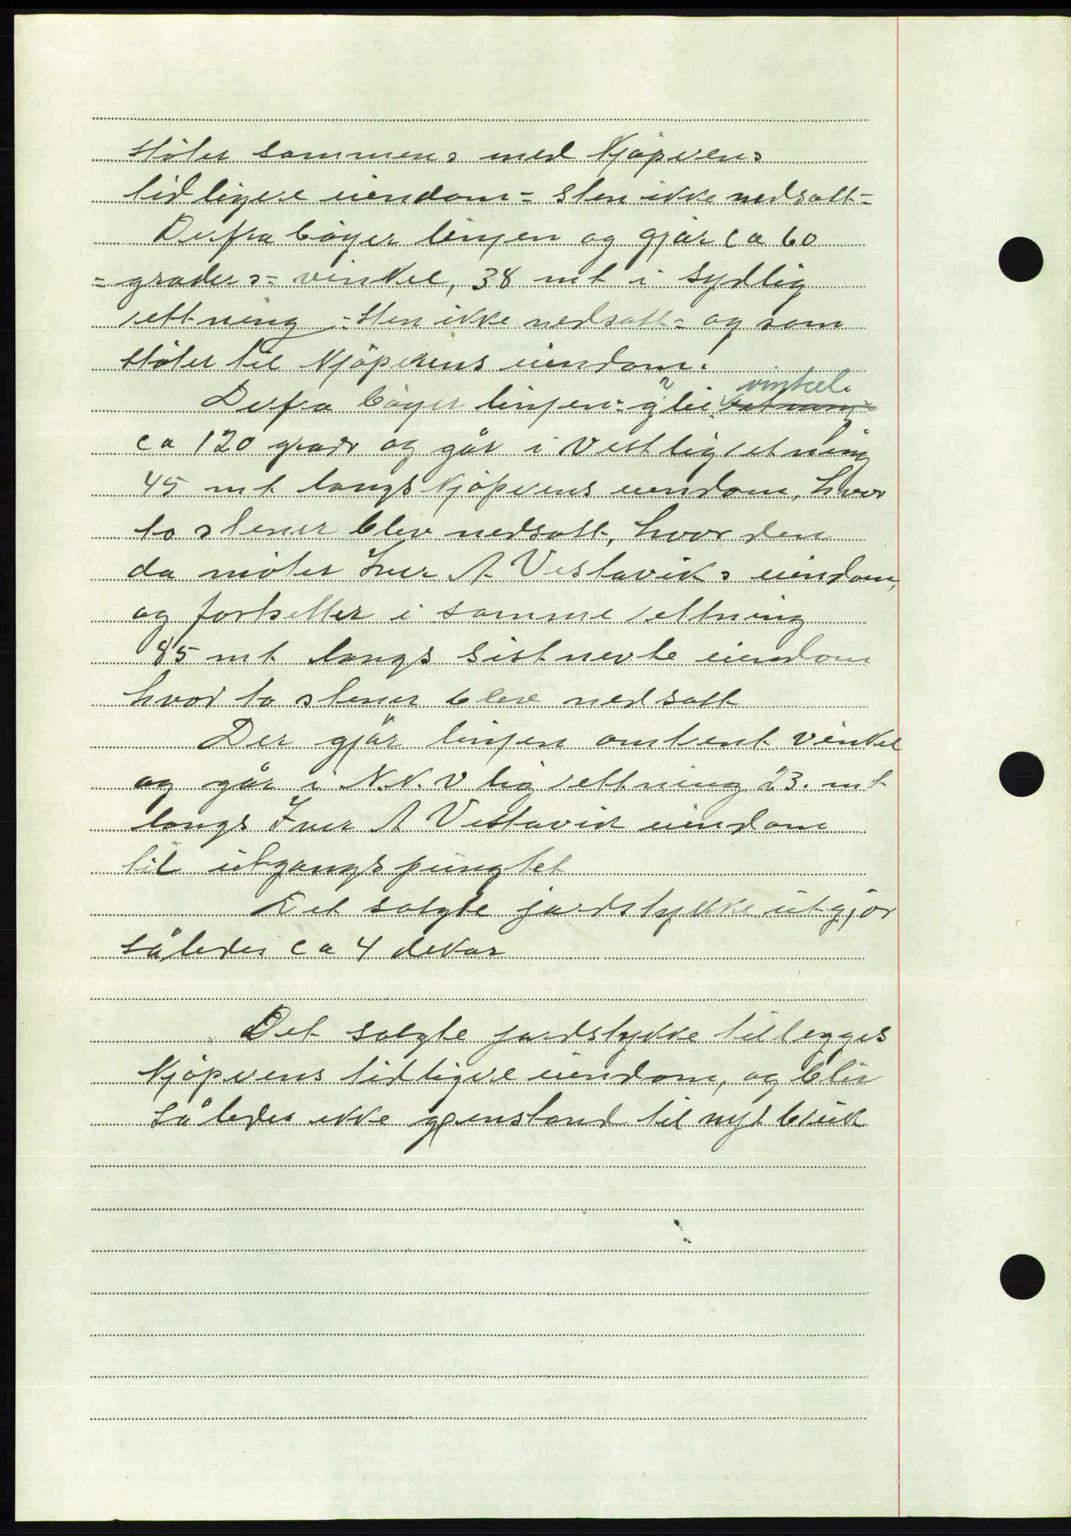 støter sammens med Kjøperens
tidligere eiendom = sten ikke nedsatt =
Derfra bøyer linjen og gjør ca 60
= graders = vinkel, 38 mt i sydlig
rettning = sten ikke nedsatt = og som
støter til Kjøperens eiendom.
Derfra bøyer linjen = vinkel.
ca 120 grader og går i Vestlig retning
45 mt langs Kjøperens eiendom, hvor
to stener blev nedsatt, hvor den
da møter Iver A. Vestaviks eiendom,
og fortsetter i samme rettning
85 mt langs sistnevte eiendom
hvor to stener blev nedsatt
Der gjør linjen omtent vinkel
og går i N.N.V lig rettning 23. mt
langs Iver A Vestavik eiendom
til utgangspungtet
Det solgte jordstykke utgjør
således ca 4 dekar
Det solgte jordstykke tillegges
Kjøperens tidligere eiendom, og blir
således ikke genstand til nyt bruk